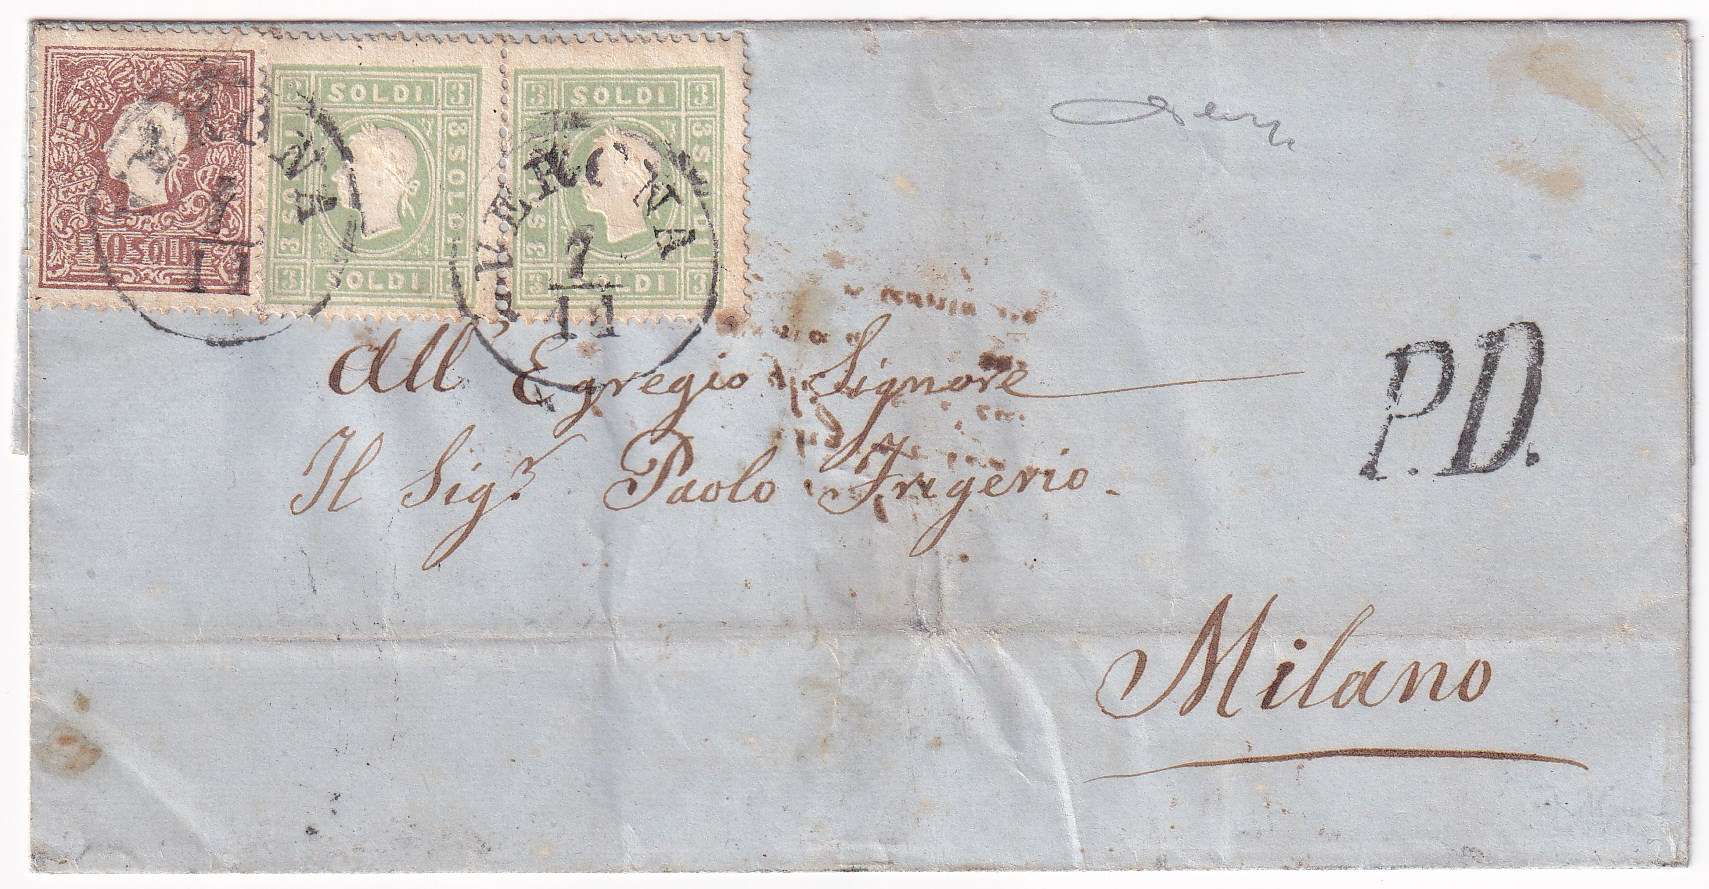 10 SOLDI
3 SOLDI 3
3 SOLDI
3 SOLDI
3 SOLDI 3
3 SOLDI 3
3 SOLDI
3 SOLDI
3 SOLDI 3
VERONA
7
11
VERONA
7
11
P.D.
All' Egregio Signore
Il Sigr. Paolo Frigerio.
Milano